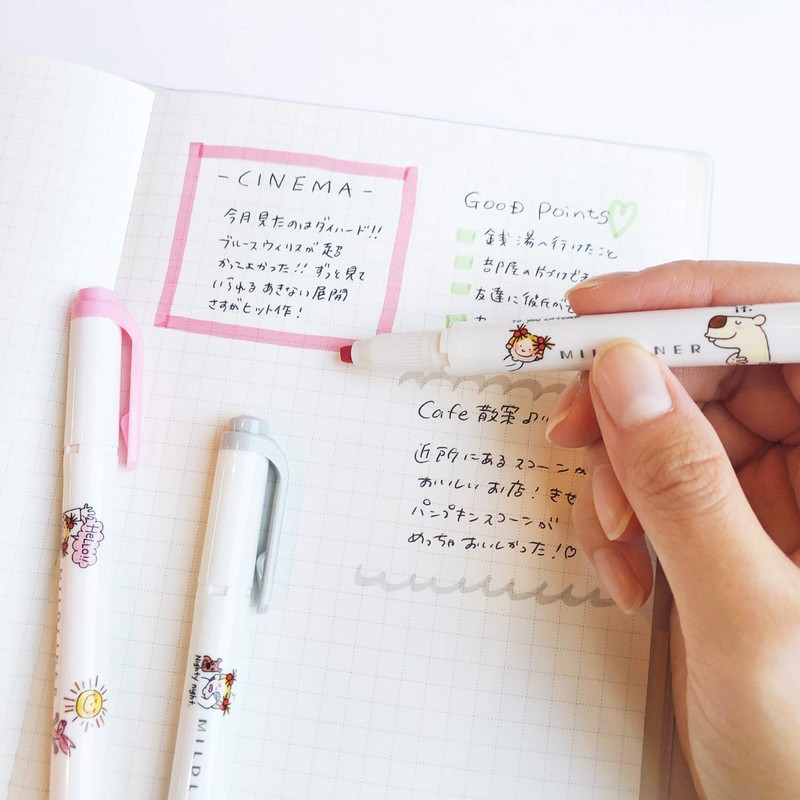 - CINEMA -
今月見たのはダイハード!!
ブルースウィリスが超
かっこよかった!! ずっと見て
いられる あきない展開
さすがヒット作!
GOOD Points
銭湯へ行けたこと
部屋の片付けできた
友達に彼氏が
Cafe 散策♪
近所にある スコーンが
おいしい お店!
パンプキンスコーンが
めっちゃ おいしかった!♡
MIL NER
HELLO!
Nighty night
MILDL